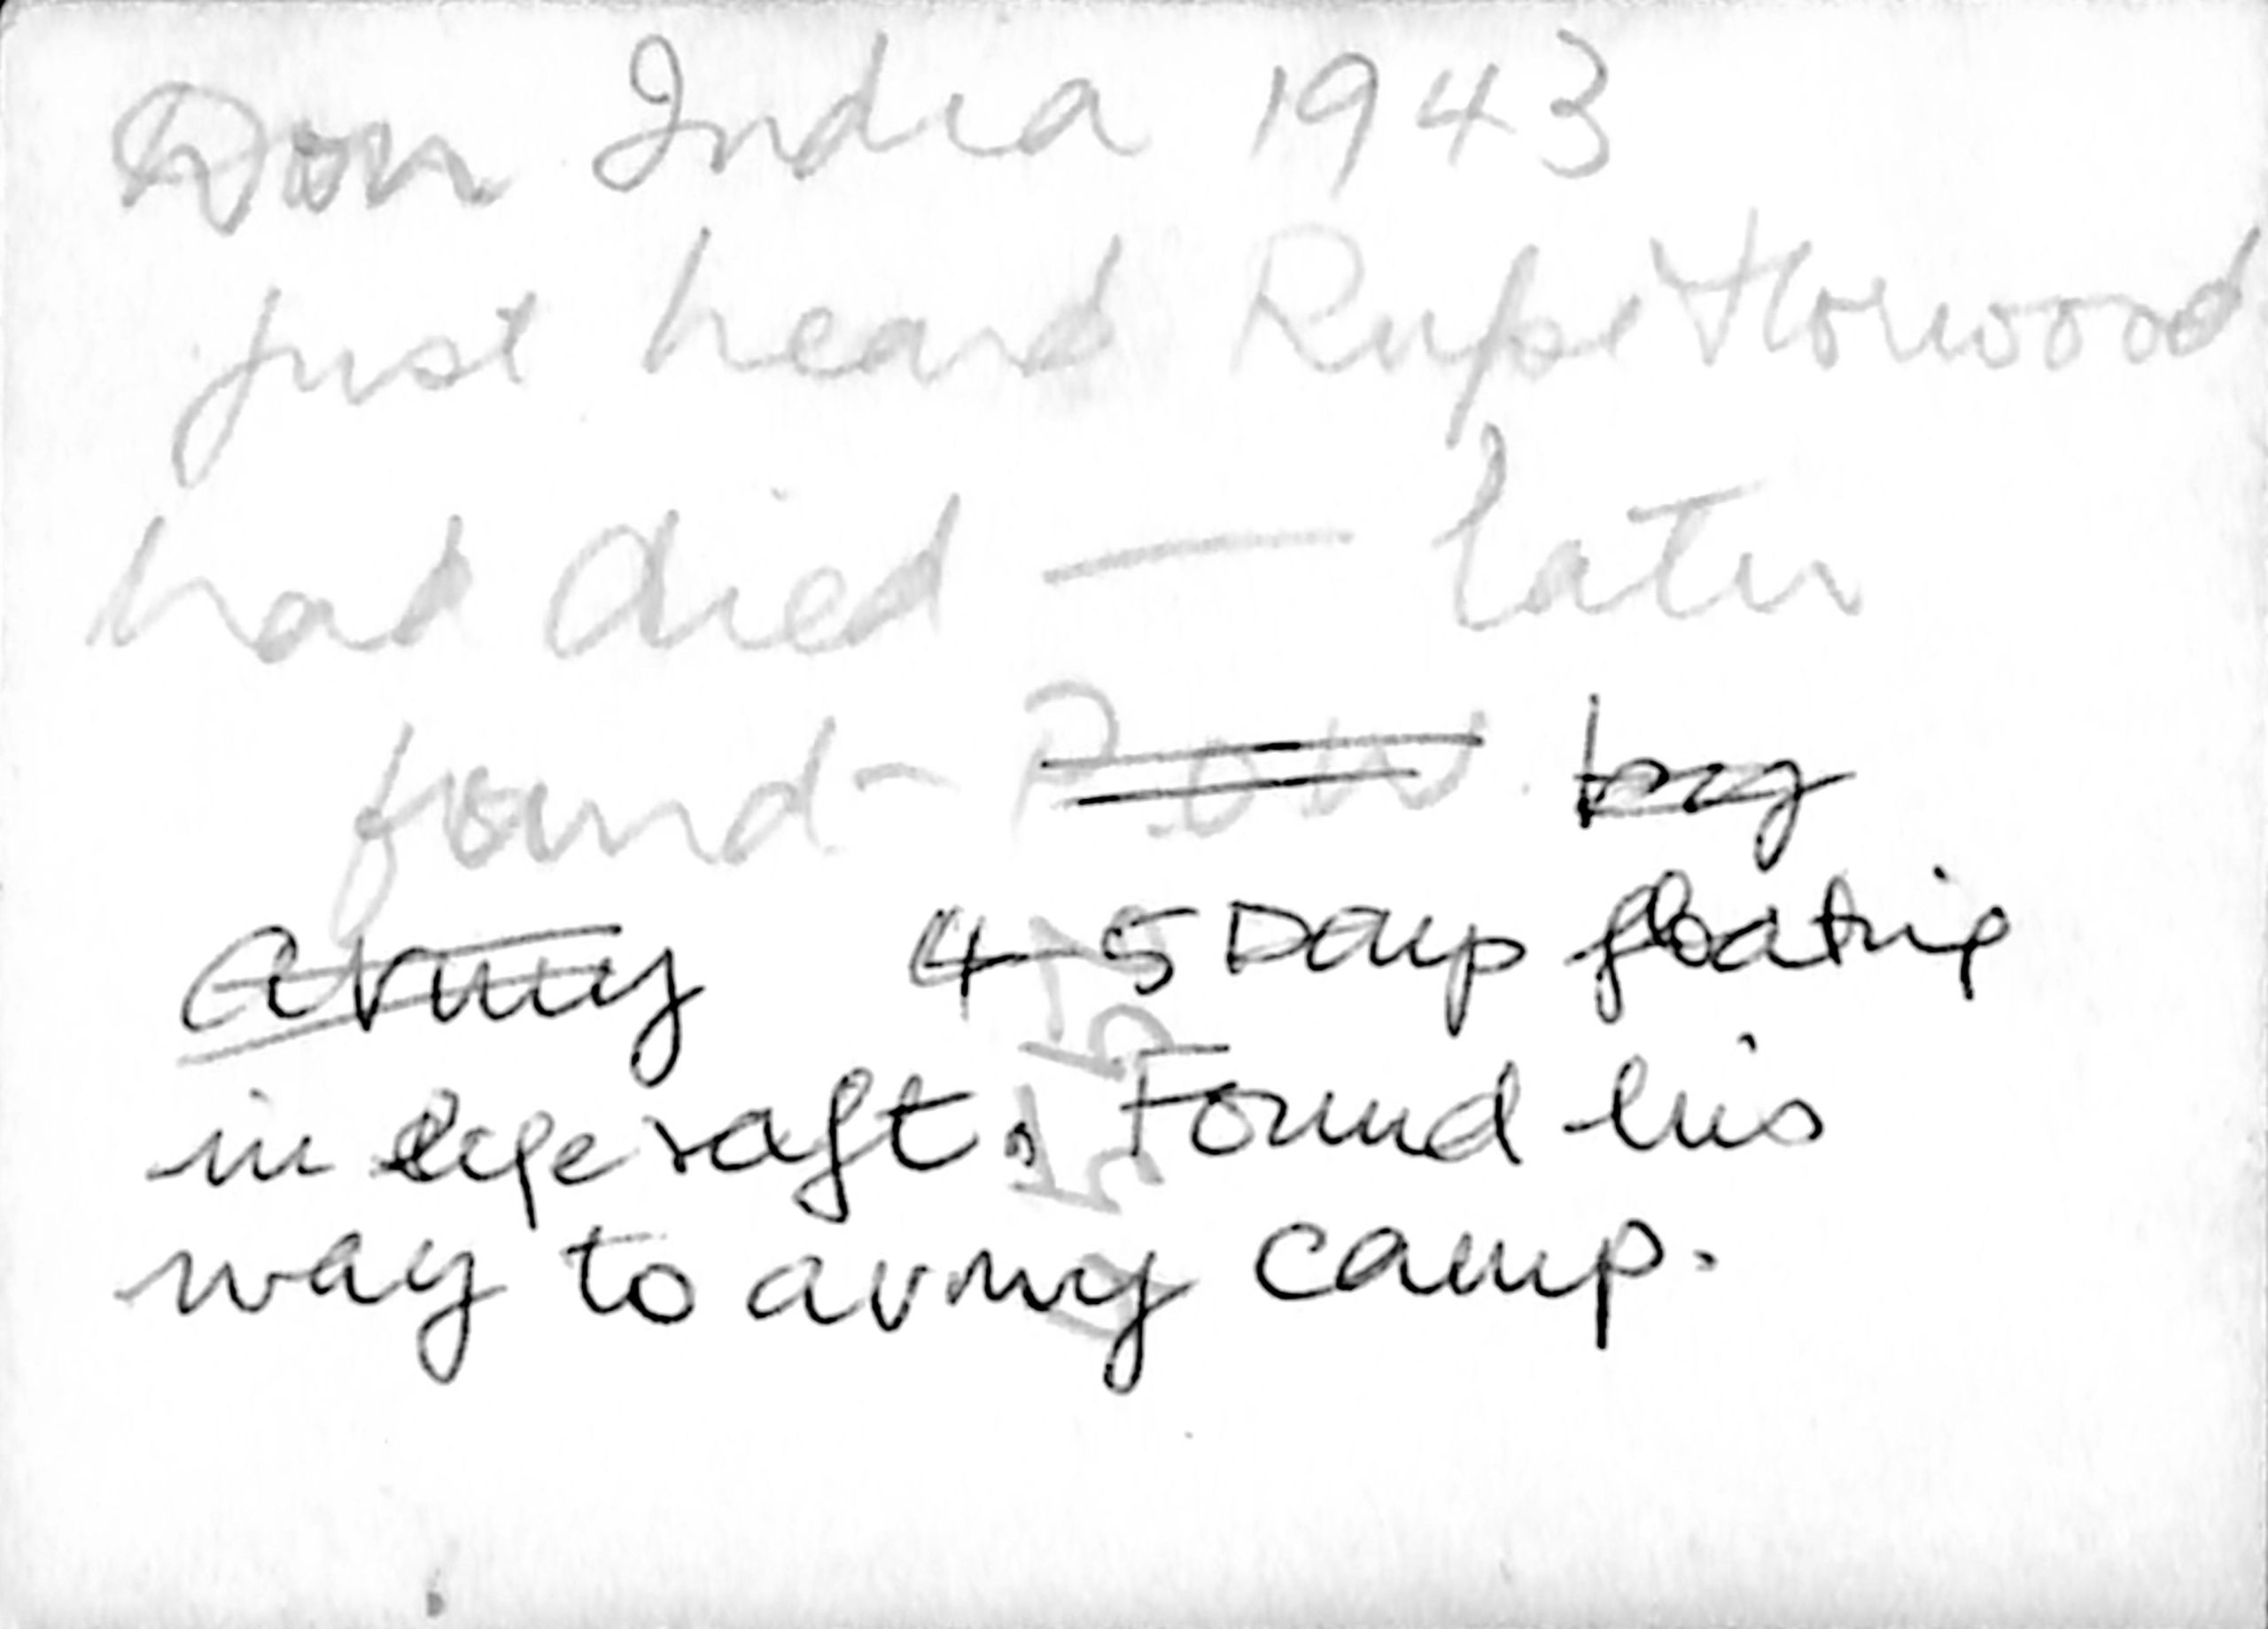 Don India 1943
just heard Rupe Horwood
had died — later
found - P.O.W. by
army 4-5 Days floating
in life raft. Found his
way to army camp.